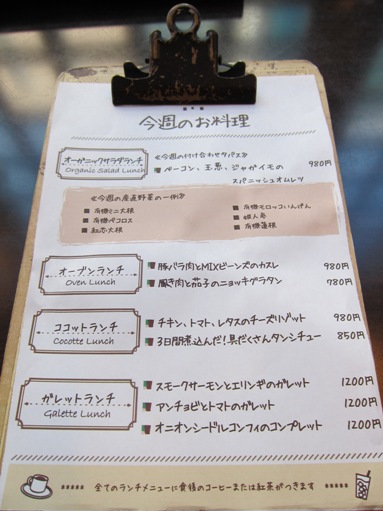 今週のお料理
オーガニックサラダランチ
Organic Salad Lunch
≪今週の付け合わせタパス≫
ベーコン、玉葱、ジャガイモの 980円
スパニッシュオムレツ
≪今週の産直野菜の一例≫
有機ミニ大根
有機モロッコいんげん
有機ペコロス
姫人参
紅芯大根
有機蓮根
オーブンランチ
Oven Lunch
豚バラ肉とMIXビーンズのカスレ 980円
挽き肉と茄子のニョッキグラタン 780円
ココットランチ
Cocotte Lunch
チキン、トマト、レタスのチーズリゾット 980円
3日間煮込んだ!具だくさんタンシチュー 850円
ガレットランチ
Galette Lunch
スモークサーモンとエリンギのガレット 1200円
アンチョビとトマトのガレット 1200円
オニオンシードルコンフィのコンプレット 1200円
全てのランチメニューに食後のコーヒーまたは紅茶がつきます